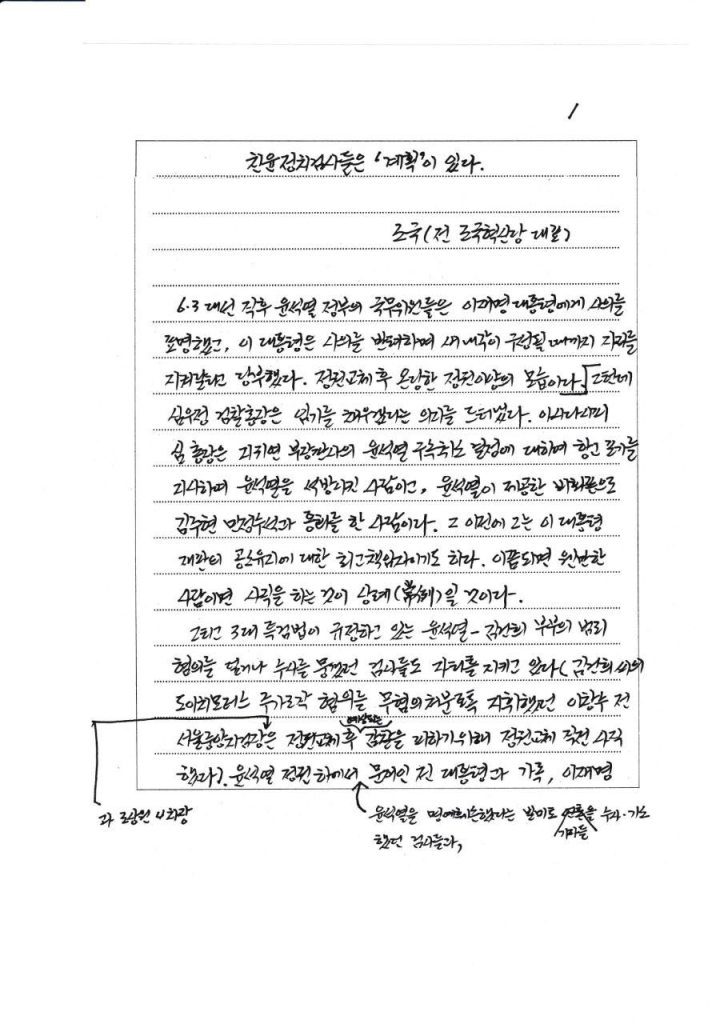 1
친윤정치검사들은 '계획'이 있다.
조국(전 조국혁신당 대표)
6·3 대선 직후 윤석열 정부의 국무위원들은 이재명 대통령에게 사의를
표명했고, 이 대통령은 사의를 반려하며 새 내각이 구성될 때까지 자리를
지켜달라고 당부했다. 정권교체 후 온당한 정권이양의 모습이다. 그런데
심우정 검찰총장은 임기를 채우겠다는 의지를 드러냈다. 아시다시피
심 총장은 지귀연 부장판사의 윤석열 구속취소 결정에 대하여 항고 포기를
지시하여 윤석열을 석방시킨 사람이고, 윤석열이 제공한 비화폰으로
김주현 민정수석과 통화를 한 사람이다. 그 이전에 그는 이 대통령
재판의 공소유지에 대한 최고책임자이기도 하다. 이쯤되면 웬만한
사람이면 사직을 하는 것이 상례(常例)일 것이다.
그리고 3대 특검법이 규정하고 있는 윤석열-김건희 부부의 범죄
혐의를 덮거나 수사를 뭉갰던 검사들도 자리를 지키고 있다(김건희 씨의
도이치모터스 주가조작 혐의를 무혐의처분토록 지휘했던 이창수 전
서울중앙지검장은 정권교체 후 예상되는 감찰을 피하기 위해 정권교체 직전 사직
했다). 윤석열 정권 하에서 문재인 전 대통령과 가족, 이재명
과 조상원 4차장
윤석열을 명예훼손했다는 발미로 언론을 수사·기소
기자들
했던 검사들과,